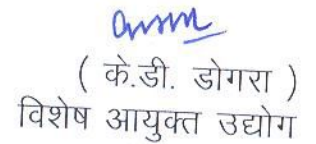 ( के.डी. डोगरा )
विशेष आयुक्त उद्योग